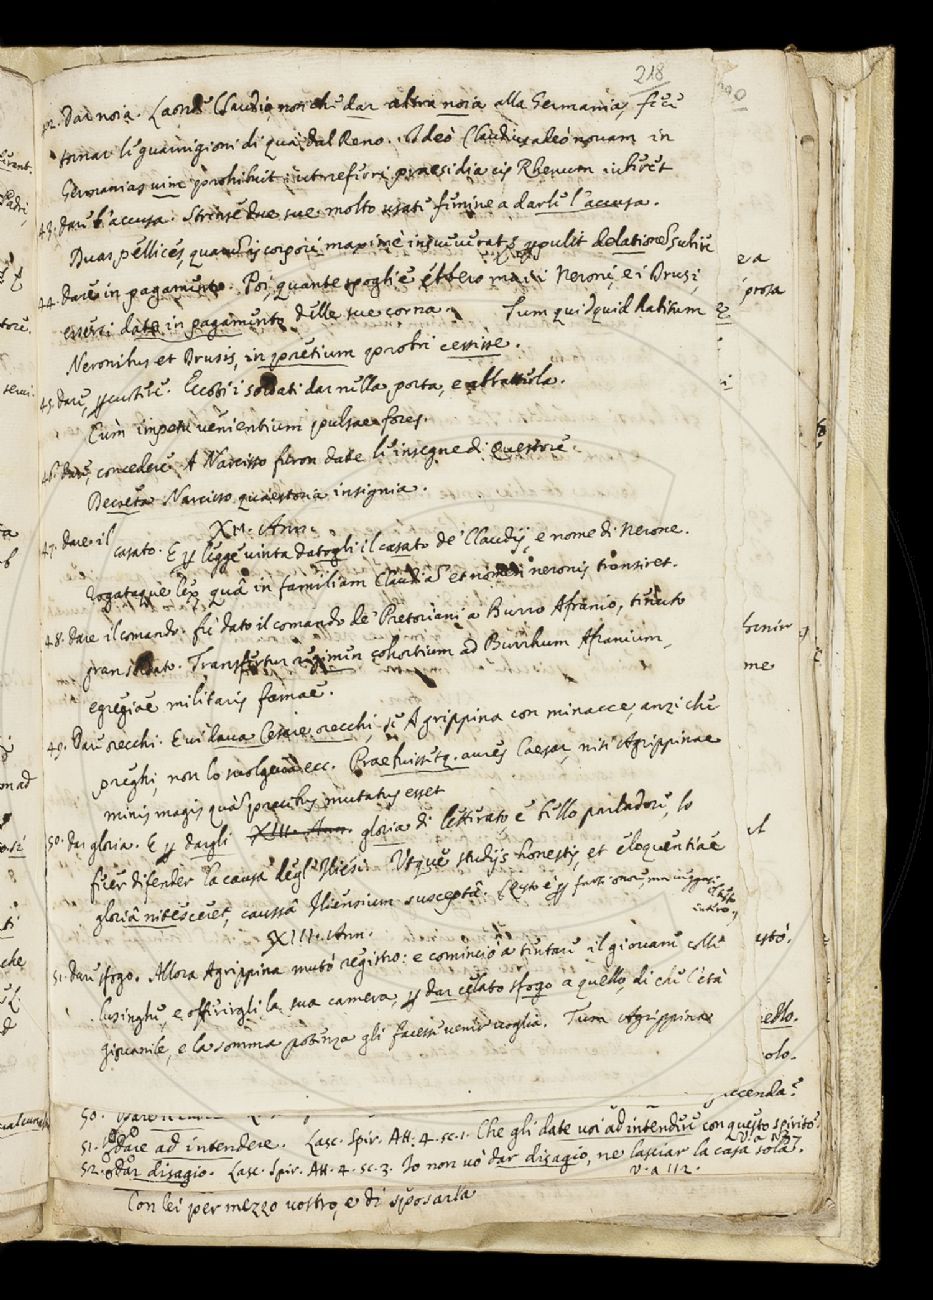 218
42. Dar noia. Laonde Claudio, non che dar altra noia alla Germania, fece
tornar le guarnigioni di quà dal Reno. Adeò Claudius adeò novam in
Germanias vim prohibuit ut referri praesidia cis Rhenum iuberet
43. dare l'accusa. Strinse due sue molto usate femine a darli l'accusa.
Duas pellices, quarum is corpori maximè insueverat, perpulit delationem subire
44. Dare in pagamento. Poi, quante spoglie ebbero mai i Neroni, e i Drusi,
essersi date in pagamento delle sue corna. Tum quidquid habitum
Neronibus et Drusis, in pretium probri cessisse.
45. dare, percuotere. Eccoti i soldati dar nella porta, e abbatterla.
Cum impetu venientium pulsae fores.
46. dare, concedere. A Narcisso furon date le insegne di Questore.
Decreta Narcisso quaestoria insignia.
XII. Ann.
47. dare il casato. E per legge vinta datogli il casato de' Claudij, e nome di Nerone.
Rogataque lex, quâ in familiam Claudiam et nomen neronis transiret.
48. dare il comando. fù dato il comando de' Pretoriani a Burro Afranio, tenuto
gran soldato. Transfertur regimen cohortium ad Burrhum Afranium,
egregiae militaris famae.
49. Dare orecchi. E vi dava Cesare orecchi, se Agrippina con minacce, anzi che
preghi, non lo svolgeva ecc. Praebuissetq. aures Caesar, nisi Agrippinae
minis magis quàm precibus mutatus esset
50. dar gloria. E per dargli XIII. Ann. gloria di letterato e bello parladore, lo
fecer difender la causa degl' Iliesi. Utque studijs honestis, et eloquentiae
gloriâ nitesceret, caussâ Iliensium susceptâ.
XIII. Ann.
51. dare sfogo. Allora Agrippina mutò registro: e cominciò a tentare il giovane colle
lusinghe, e offerirgli la sua camera, per dar celato sfogo a quello, di che l'età
giovanile, e la somma potenza gli facesse venir voglia. Tum Agrippina
50.
51. dare ad intendere. Lasc. Spir. Att. 4. sc. 1. Che gli date voi ad intendere con questo spirito?
52. dar disagio. Lasc. Spir. Att. 4. sc. 3. Io non vò dar disagio, ne lasciar la casa sola.
v. a 112.
Con lei per mezzo vostro, e di sposarla